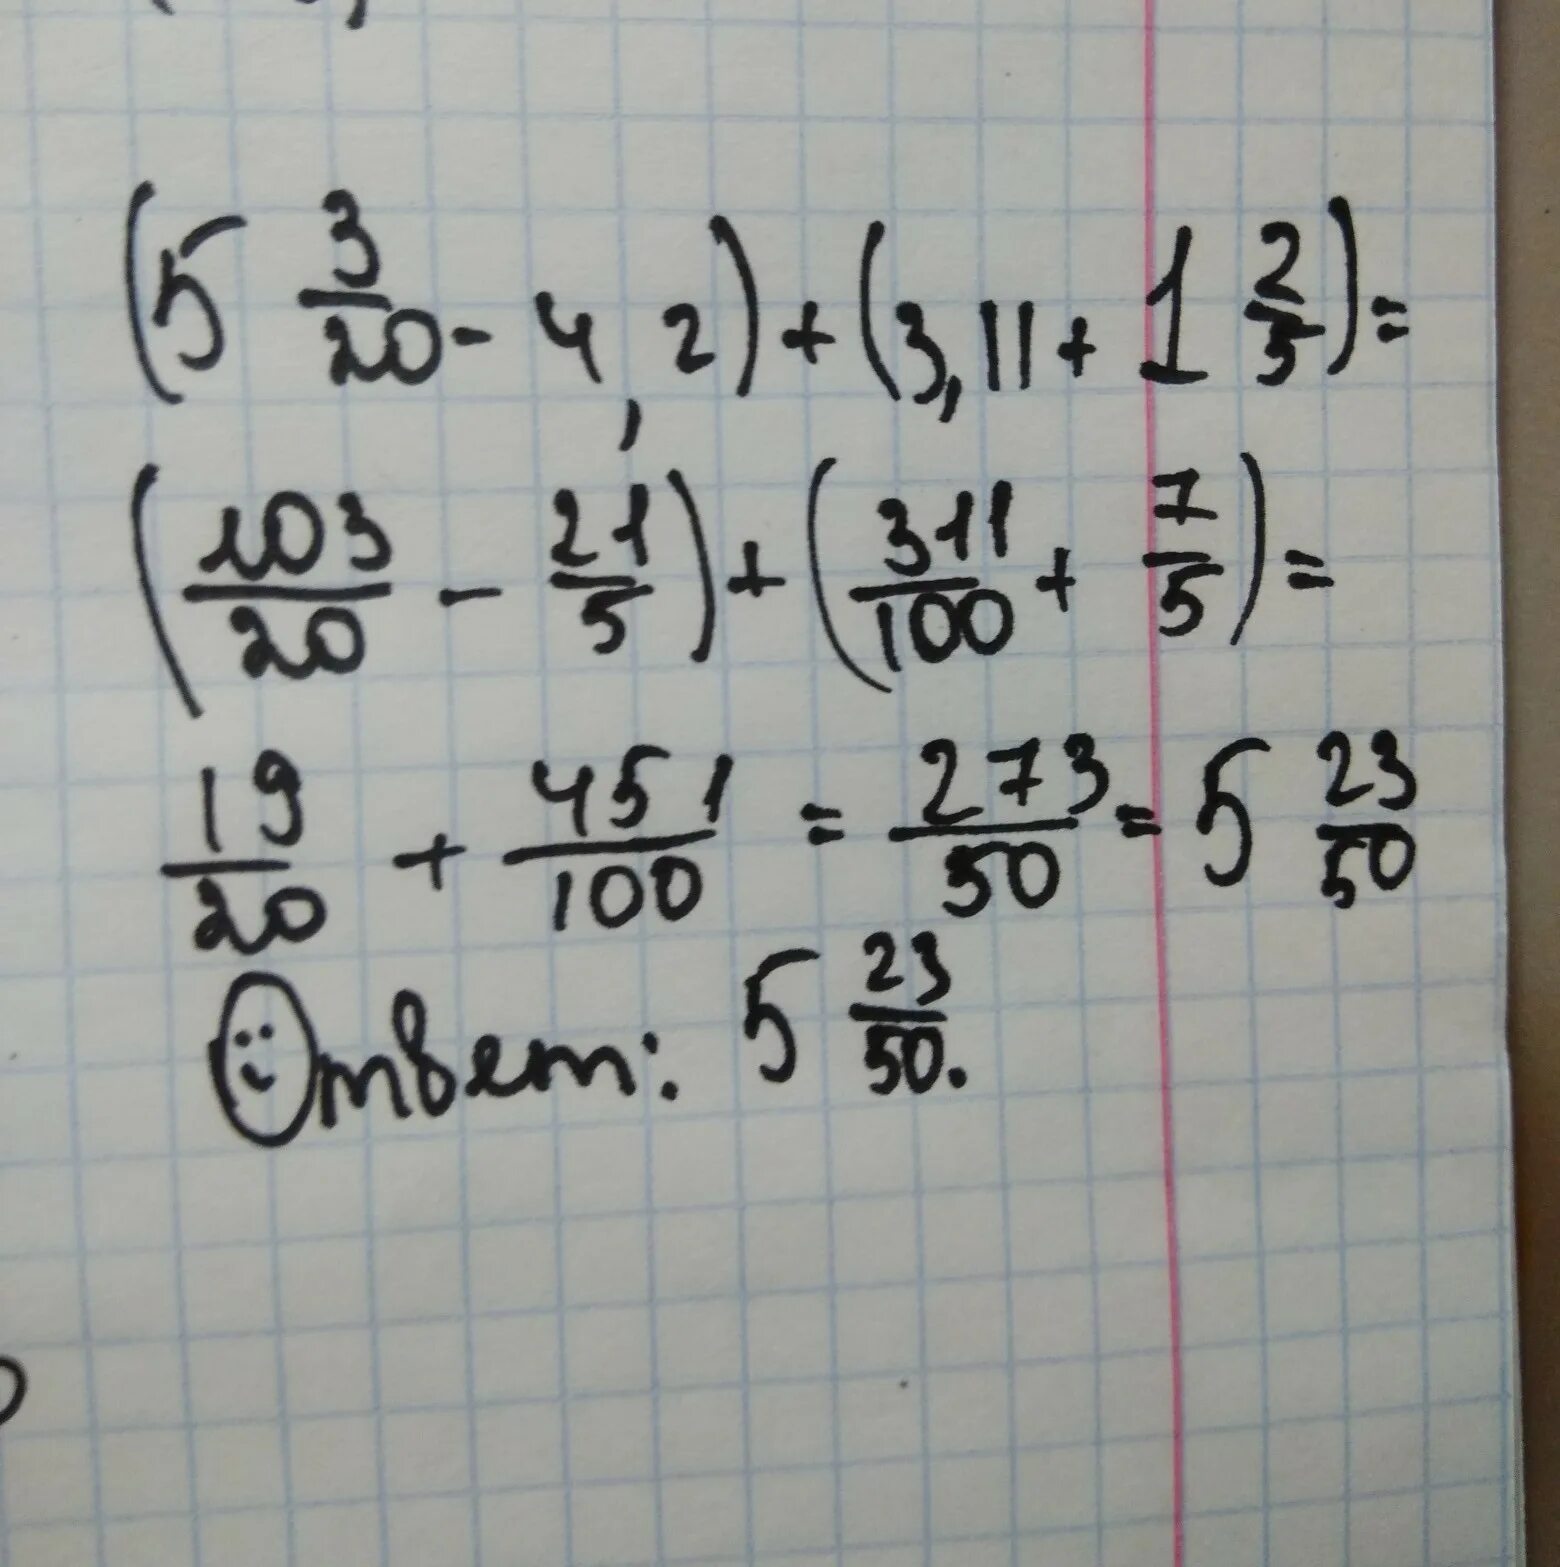 (5 3/20 - 4,2) + (3,11 + 1 2/5) =
(103/20 - 21/5) + (311/100 + 7/5) =
19/20 + 451/100 = 273/50 = 5 23/50
Ответ: 5 23/50.